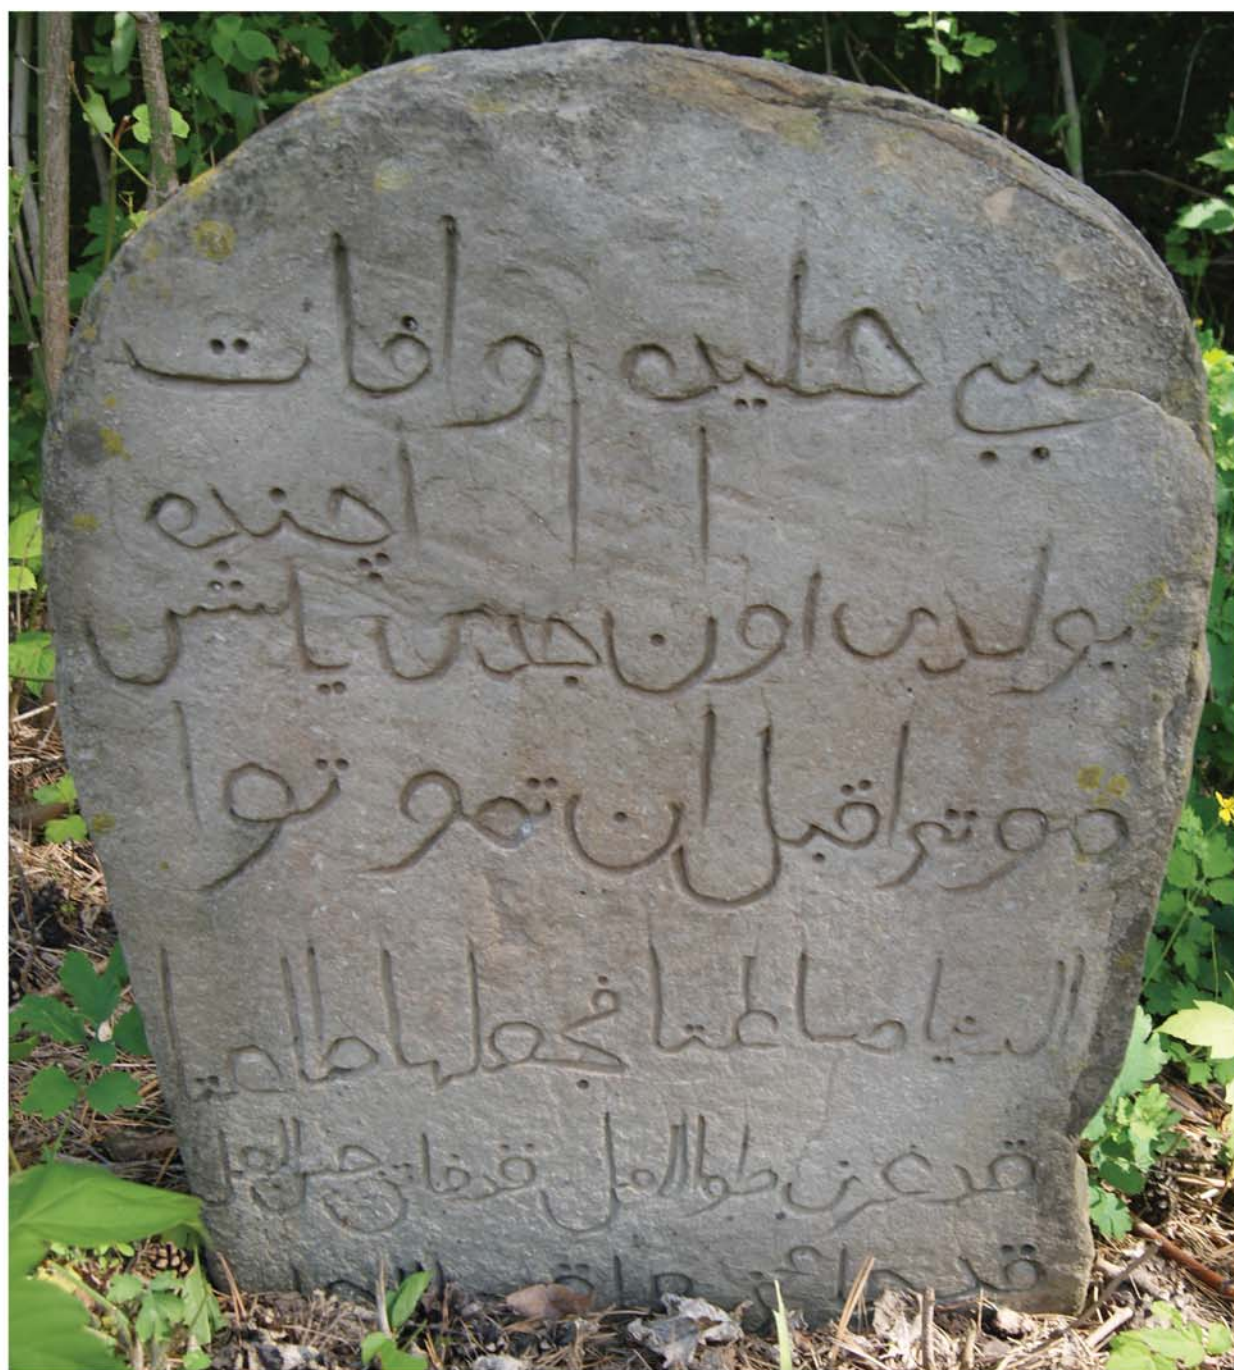 حليده وافات
اچنده
بولدى اون جدى ياش
موتوا قبل ان تموتوا
الدنيا ساعتا فجعلها طاعتا
قد غرنى طوالامل قد فاتنى حسن العمل
قد